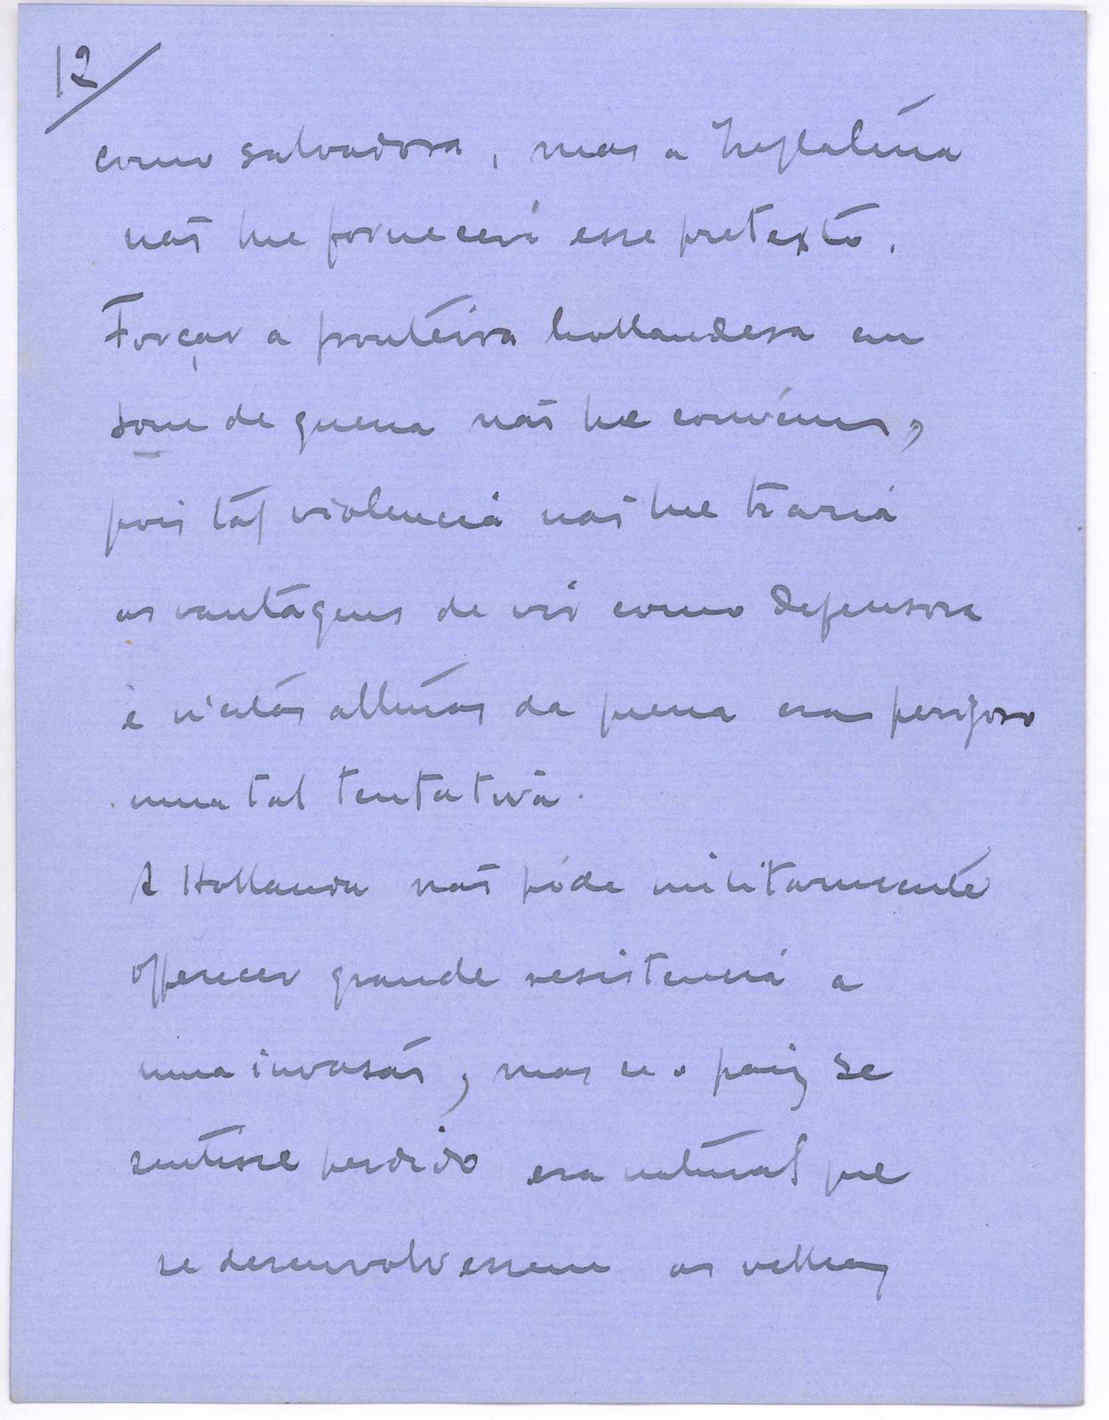 12
como salvadora, mas a Inglaterra
não lhe fornecerá esse pretexto.
Forçar a fronteira hollandesa em
som de guerra não lhe convém,
pois tal violencia não lhe traria
as vantagens de vir como defensora
e alturas da guerra era perigoso
uma tal tentativa.
A Hollanda não póde militarmente
offerecer grande resistencia a
uma invasão, mas se o paiz se
sentisse perdido era natural que
se desenvolvessem as velhas